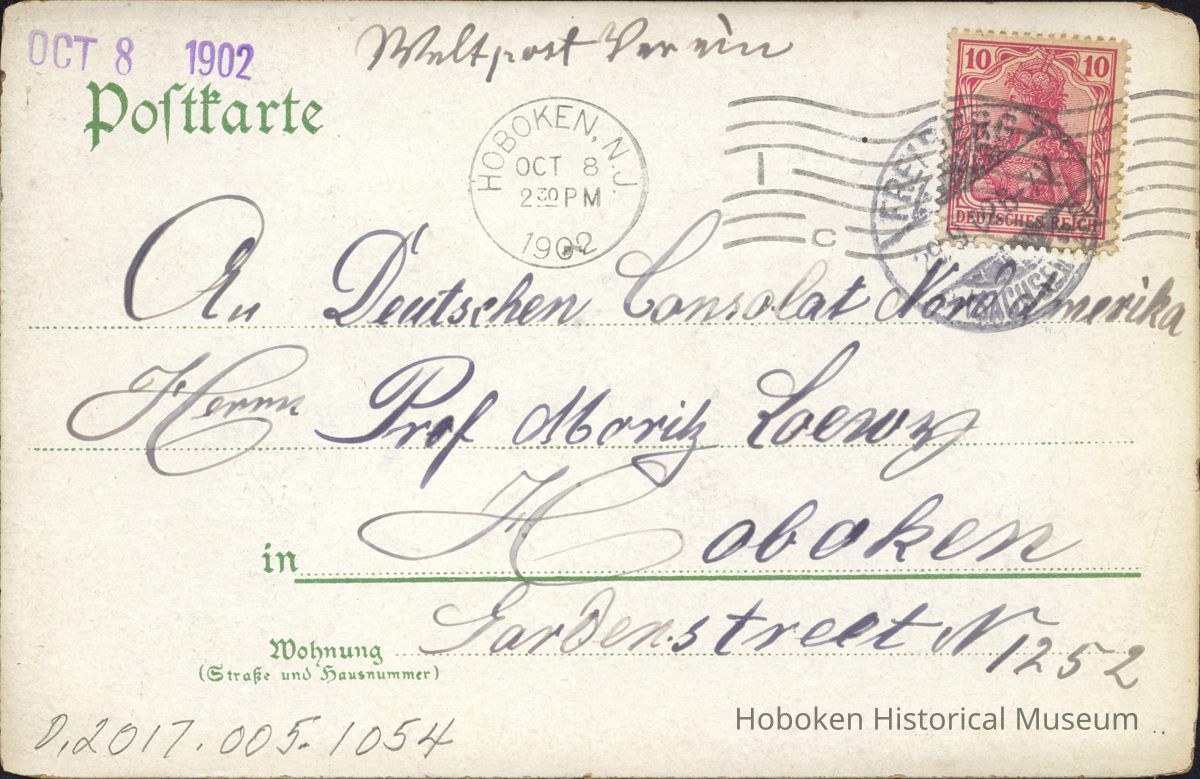 OCT 8 1902
Weltpost Verein
Postkarte
10 10
DEUTSCHES REICH
HOBOKEN, N.J.
OCT 8
2 30 PM
1902
1
C
FREIBERG
SACHSEN
An Deutschen Consolat Nord Amerika
Herrn Prof Moritz Loewy
in Hoboken
Gardenstreet N 1252
Wohnung
(Straße und Hausnummer)
D.2017.005.1054
Hoboken Historical Museum